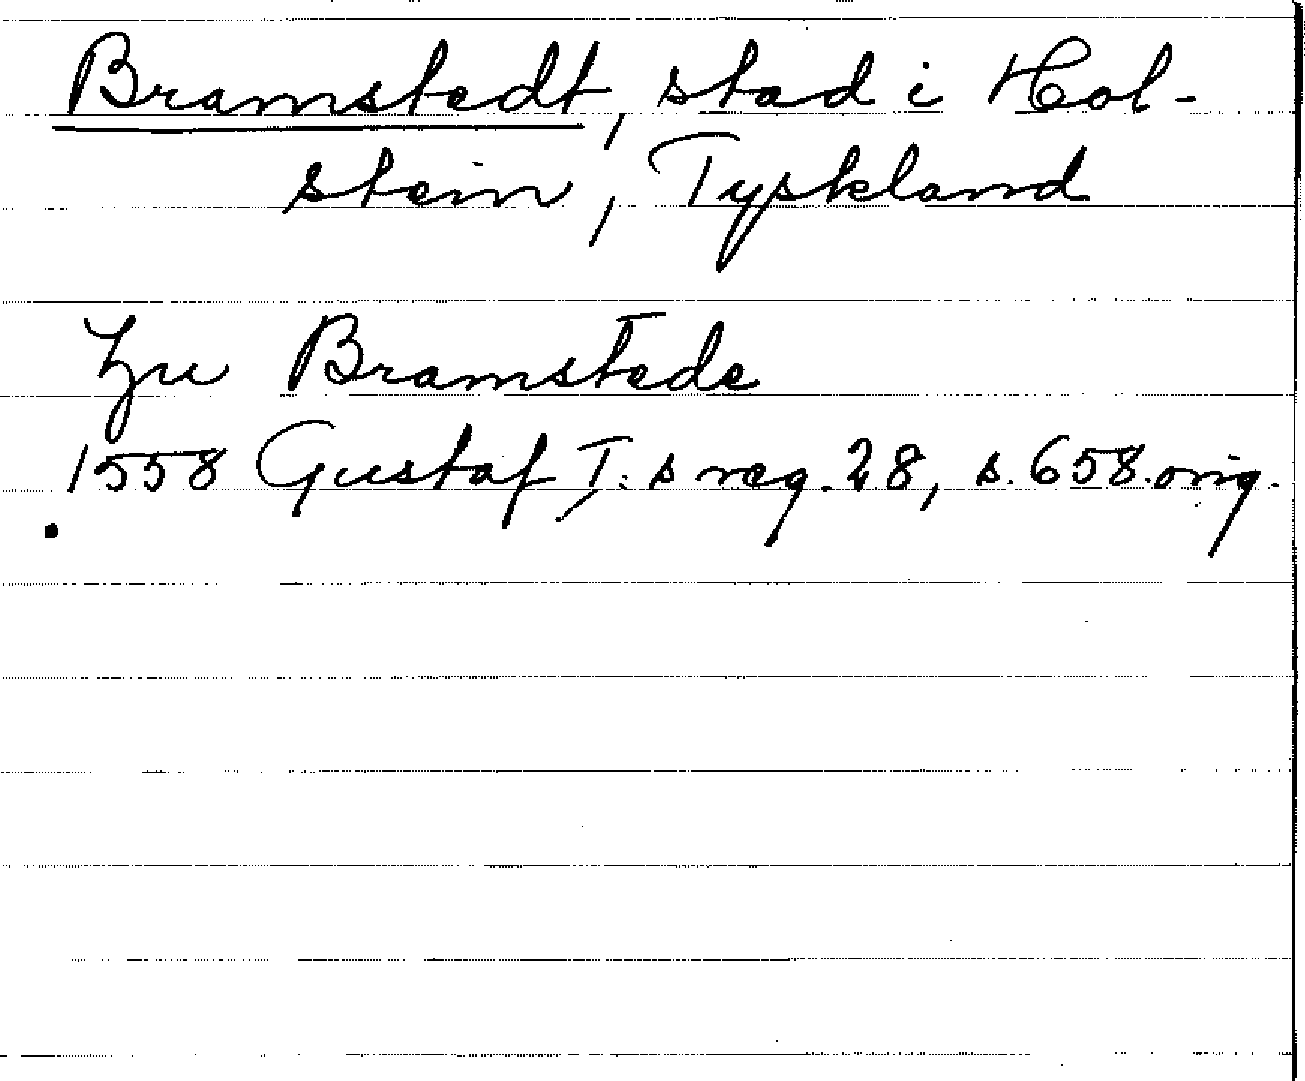 Bramstedt, stad i Hol-
stein, Tyskland
Zu Bramstede
1558 Gustaf I:s reg. 28, s. 658. orig.